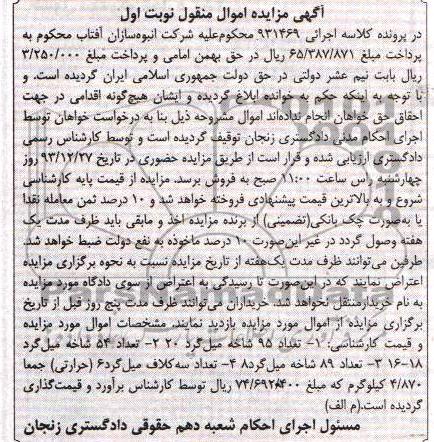 آگهی مزایده اموال منقول نوبت اول
در پرونده کلاسه اجرائی ۹۳۱۴۶۹ محکوم‌علیه شرکت انبوه‌سازان آفتاب محکوم به
پرداخت مبلغ ۶۵/۳۸۷/۸۷۱ ریال در حق بهمن امامی و پرداخت مبلغ ۳/۲۵۰/۰۰۰
ریال بابت نیم عشر دولتی در حق دولت جمهوری اسلامی ایران گردیده است. و
با توجه به اینکه حکم به خوانده ابلاغ گردیده و ایشان هیچ‌گونه اقدامی در جهت
احقاق حق خواهان انجام نداده‌اند اموال مشروحه ذیل بنا به درخواست خواهان توسط
اجرای احکام مدنی دادگستری زنجان توقیف گردیده است و توسط کارشناس رسمی
دادگستری ارزیابی شده و قرار است از طریق مزایده حضوری در تاریخ ۹۳/۱۲/۲۷ روز
چهارشنبه راس ساعت ۱۱:۰۰ صبح به فروش برسد. مزایده از قیمت پایه کارشناسی
شروع و به بالاترین قیمت پیشنهادی فروخته خواهد شد و ۱۰ درصد ثمن معامله نقدا
یا به‌صورت چک بانکی(تضمینی) از برنده مزایده اخذ و مابقی باید ظرف مدت یک
هفته وصول گردد در غیر این‌صورت ۱۰ درصد ماخوذه به نفع دولت ضبط خواهد شد.
طرفین می‌توانند ظرف مدت یک‌هفته از تاریخ مزایده نسبت به نحوه برگزاری مزایده
اعتراض نمایند که در این‌صورت تا رسیدگی به اعتراض از سوی دادگاه مورد مزایده
به نام خریدار منتقل نخواهد شد. خریداران می‌توانند ظرف مدت پنج روز قبل از تاریخ
برگزاری مزایده از اموال مورد مزایده بازدید نمایند. مشخصات اموال مورد مزایده
و قیمت کارشناسی: ۱- تعداد ۹۵ شاخه میل‌گرد ۲۰ ۲- تعداد ۵۴ شاخه میل‌گرد
۱۶-۱۸ ۳- تعداد ۸۹ شاخه میل‌گرد۸ ۴- تعداد سه‌کلاف میل‌گرد۶ (حرارتی) جمعا
۴/۸۷۰ کیلوگرم که مبلغ ۷۴/۶۹۲/۴۰۰ ریال توسط کارشناس برآورد و قیمت‌گذاری
گردیده است.(م الف)
مسئول اجرای احکام شعبه دهم حقوقی دادگستری زنجان